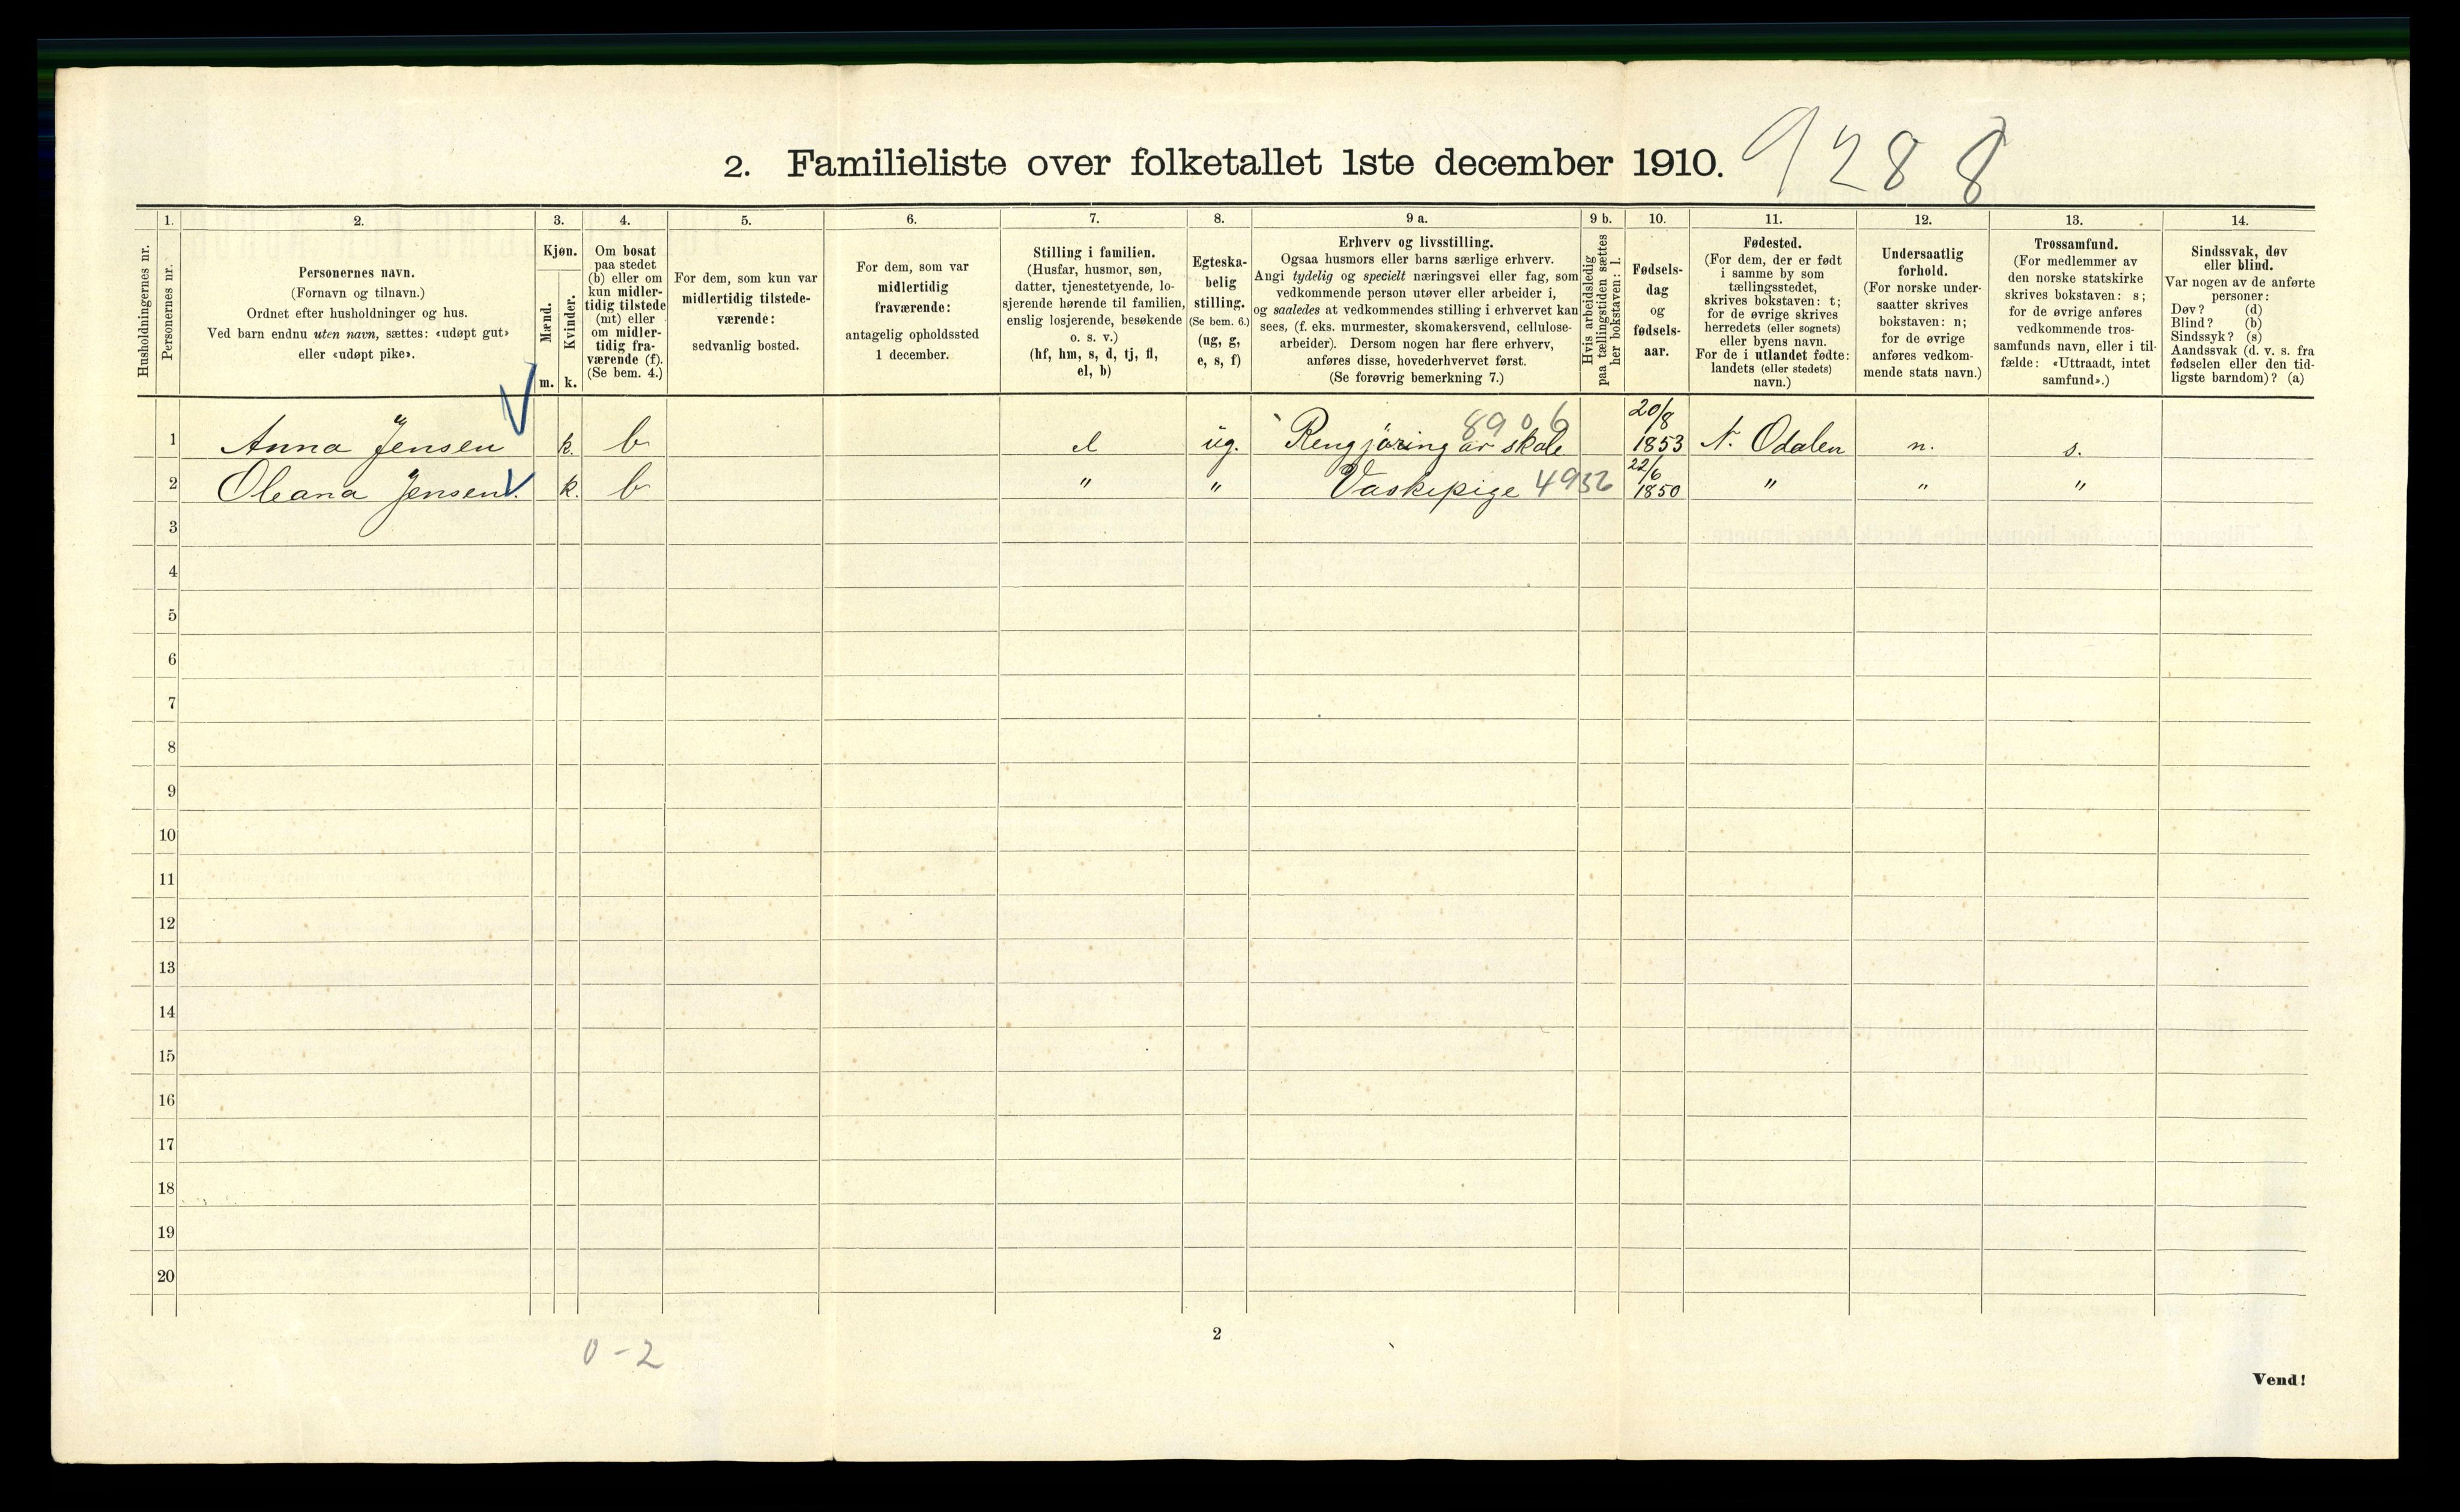 2. Familieliste over folketallet 1ste december 1910.
9288
Husholdningernes nr.
1.
Personernes nr.
2.
Personernes navn.
(Fornavn og tilnavn.)
Ordnet efter husholdninger og hus.
Ved barn endnu uten navn, sættes: «udøpt gut»
eller «udøpt pike».
3.
Kjøn.
Mænd.
m.
Kvinder.
k.
4.
Om bosat
paa stedet
(b) eller om
kun midler-
tidig tilstede
(mt) eller
om midler-
tidig fra-
værende (f).
(Se bem. 4.)
5.
For dem, som kun var
midlertidig tilstede-
værende:
sedvanlig bosted.
6.
For dem, som var
midlertidig
fraværende:
antagelig opholdssted
1 december.
7.
Stilling i familien.
(Husfar, husmor, søn,
datter, tjenestetyende, lo-
sjerende hørende til familien,
enslig losjerende, besøkende
o. s. v.)
(hf, hm, s, d, tj, fl,
el, b)
8.
Egteska-
belig
stilling.
(Se bem. 6.)
(ug, g,
e, s, f)
9 a.
Erhverv og livsstilling.
Ogsaa husmors eller barns særlige erhverv.
Angi tydelig og specielt næringsvei eller fag, som
vedkommende person utøver eller arbeider i,
og saaledes at vedkommendes stilling i erhvervet kan
sees, (f. eks. murmester, skomakersvend, cellulose-
arbeider). Dersom nogen har flere erhverv,
anføres disse, hovederhvervet først.
(Se forøvrig bemerkning 7.)
9 b.
Hvis arbeidsledig
paa tællingstiden sættes
her bokstaven: l.
10.
Fødsels-
dag
og
fødsels-
aar.
11.
Fødested.
(For dem, der er født
i samme by som
tællingsstedet,
skrives bokstaven: t;
for de øvrige skrives
herredets (eller sognets)
eller byens navn.
For de i utlandet fødte:
landets (eller stedets)
navn.)
12.
Undersaatlig
forhold.
(For norske under-
saatter skrives
bokstaven: n;
for de øvrige
anføres vedkom-
mende stats navn.)
13.
Trossamfund.
(For medlemmer av
den norske statskirke
skrives bokstaven: s;
for de øvrige anføres
vedkommende tros-
samfunds navn, eller i til-
fælde: «Uttraadt, intet
samfund».)
14.
Sindssvak, døv
eller blind.
Var nogen av de anførte
personer:
Døv? (d)
Blind? (b)
Sindssyk? (s)
Aandssvak (d. v. s. fra
fødselen eller den tid-
ligste barndom)? (a)
8906 20/8
1 Anna Jensen k. b el ug. Rengjöring av skole 1853 N. Odalen n. s.
22/6
2 Oleana Jensen. k. b " " Vaskepige 4932 1850 " " "
3
4
5
6
7
8
9
10
11
12
13
14
15
16
17
18
19
20
2
0-2
Vend!